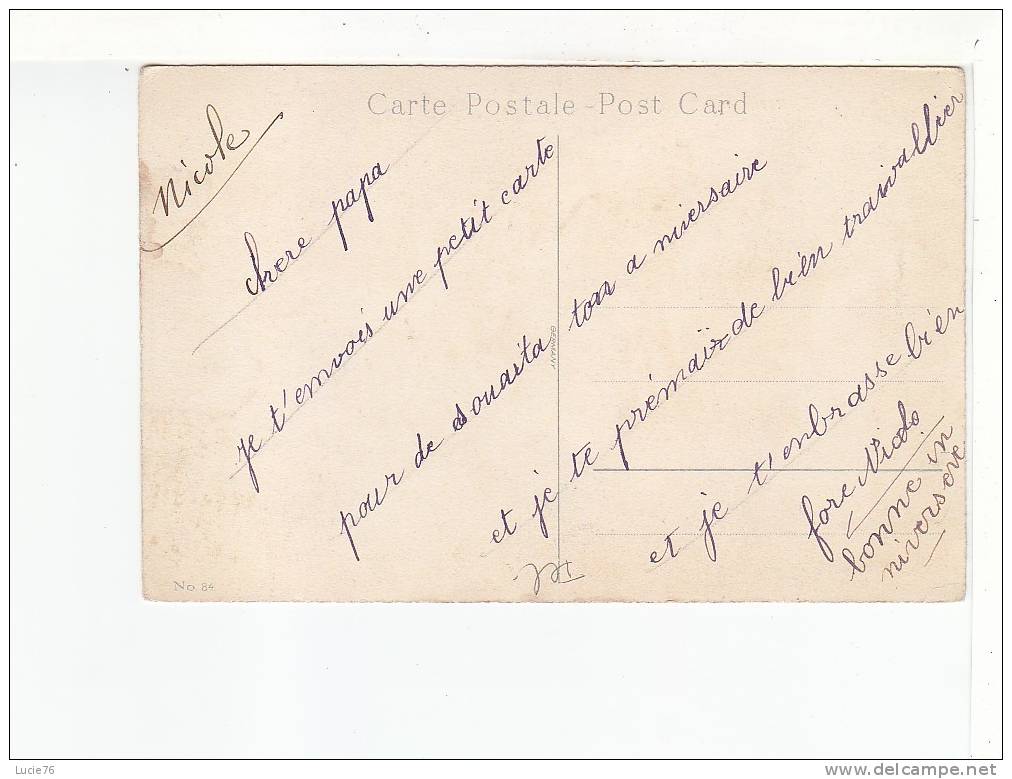 Carte Postale - Post Card
Nicole
chere papa
je t'envois une petit carte
pour de souaita ton a niversaire
et je te prémair de bien travallier
et je t'enbrasse bien
fore Nicole
bonne in
niversere
GERMANY
No. 84
Lucie76
www.delcampe.net